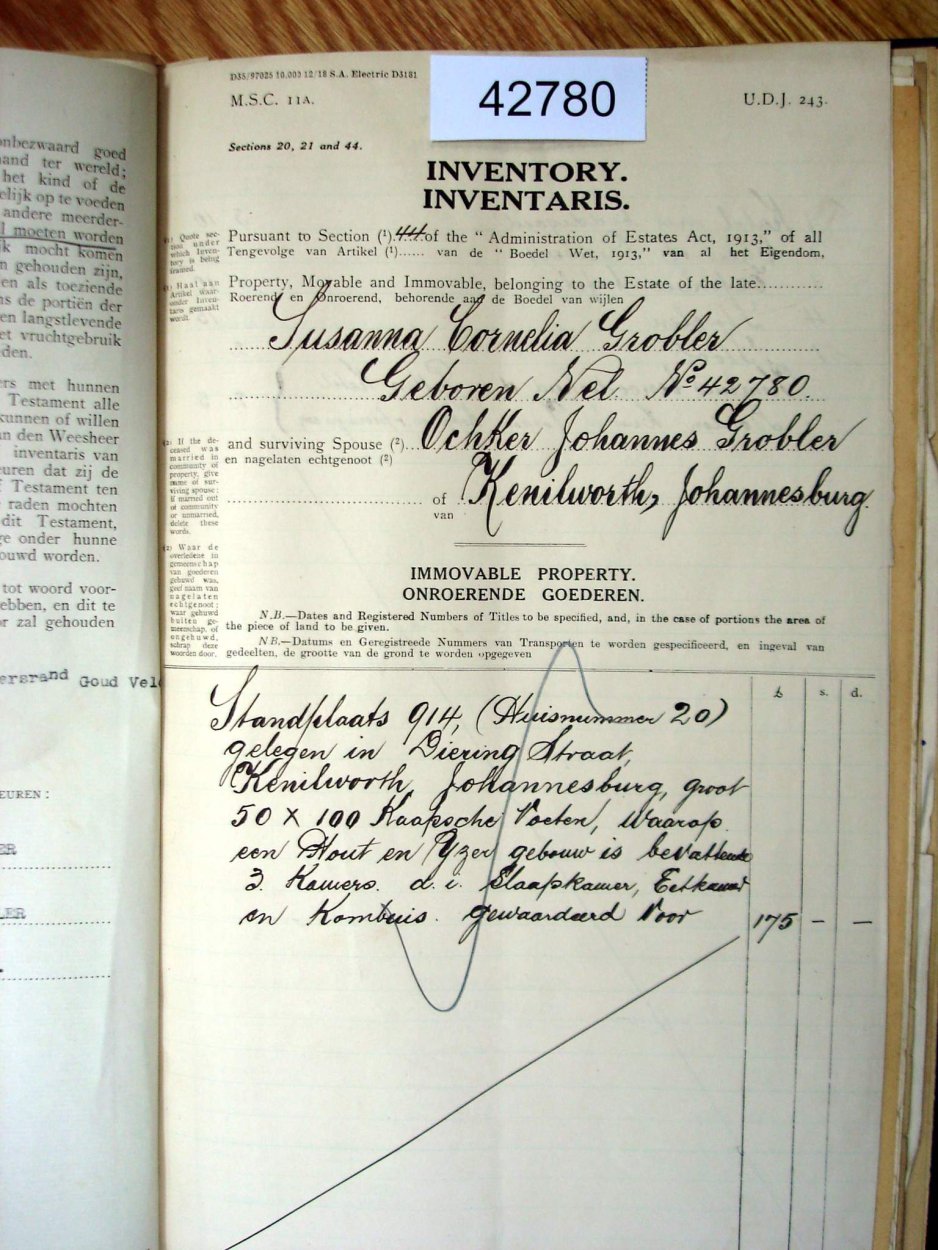 onbezwaard goed
hand ter wereld;
het kind of de
elijk op te voeden
andere meerder-
l moeten worden
jk mocht komen
n gehouden zijn,
en als toeziende
ns de portiën der
en langstlevende
et vruchtgebruik
den.
ers met hunnen
Testament alle
kunnen of willen
an den Weesheer
inventaris van
euren dat zij de
f Testament ten
raden mochten
dit Testament,
ge onder hunne
ouwd worden.
tot woord voor-
ebben, en dit te
or zal gehouden
ersrand Goud Vel
EUREN:
ER
LER
D35/97025 10.000 12/18 S.A. Electric D3181
42780
M.S.C. 11A.
U.D.J. 243.
Sections 20, 21 and 44.
INVENTORY.
INVENTARIS.
(1) Quote sec-
tion under
which Inven-
tory is being
framed.
Pursuant to Section (1) 44 of the “ Administration of Estates Act, 1913,” of all
Tengevolge van Artikel (1)...... van de “ Boedel Wet, 1913,” van al het Eigendom,
(1) Haal aan
Artikel waar-
onder Inven-
taris gemaakt
wordt.
Property, Movable and Immovable, belonging to the Estate of the late............
Roerend en Onroerend, behorende aan de Boedel van wijlen
Susanna Cornelia Grobler
Geboren Nel No 42780.
(2) If the de-
ceased was
married in
community of
property, give
name of sur-
viving spouse;
if married out
of community
or unmarried,
delete these
words.
and surviving Spouse (2)... Ochker Johannes Grobler
en nagelaten echtgenoot (2)
of Kenilworth, Johannesburg.
van
(2) Waar de
overledene in
gemeenschap
van goederen
gehuwd was,
geef naam van
nagelaten
echtgenoot;
waar gehuwd
buiten ge-
meenschap, of
ongehuwd,
schrap deze
woorden door.
IMMOVABLE PROPERTY.
ONROERENDE GOEDEREN.
N.B.—Dates and Registered Numbers of Titles to be specified, and, in the case of portions the area of
the piece of land to be given.
NB.—Datums en Geregistreede Nummers van Transporten te worden gespecificeerd, en ingeval van
gedeelten, de grootte van de grond te worden opgegeven
£ s. d.
Standplaats 914, (Huisnummer 20)
gelegen in Diering Straat,
Kenilworth, Johannesburg, groot
50 x 100 Kaapsche Voeten, Waarop
een Hout en Yzer gebouw is bevattende
3 Kamers. d.i. Slaapkamer, Eetkamer
en Kombuis. gewaardeerd Voor 175 – –